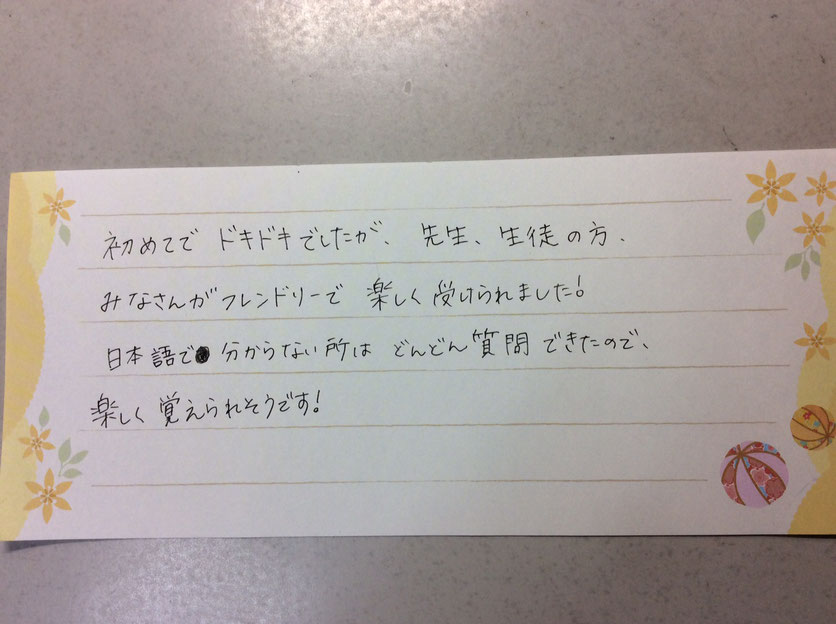 初めてで ドキドキでしたが、先生、生徒の方、
みなさんがフレンドリーで 楽しく受けられました!
日本語で 分からない所は どんどん質問できたので、
楽しく覚えられそうです!